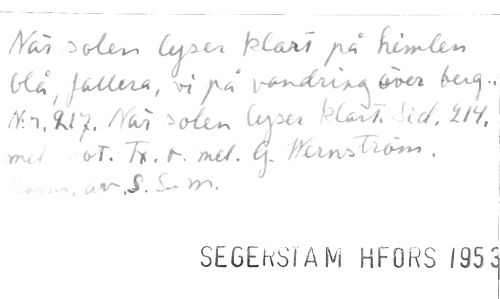 När solen lyser klart på himlen
blå, fallera, vi på vandring över berg..
Nr. 217. När solen lyser klart. Sid. 214.
med not. Tx. o. mel. G. Wernström.
Harm. av. S. S-m.
SEGERSTAM HFORS 1953